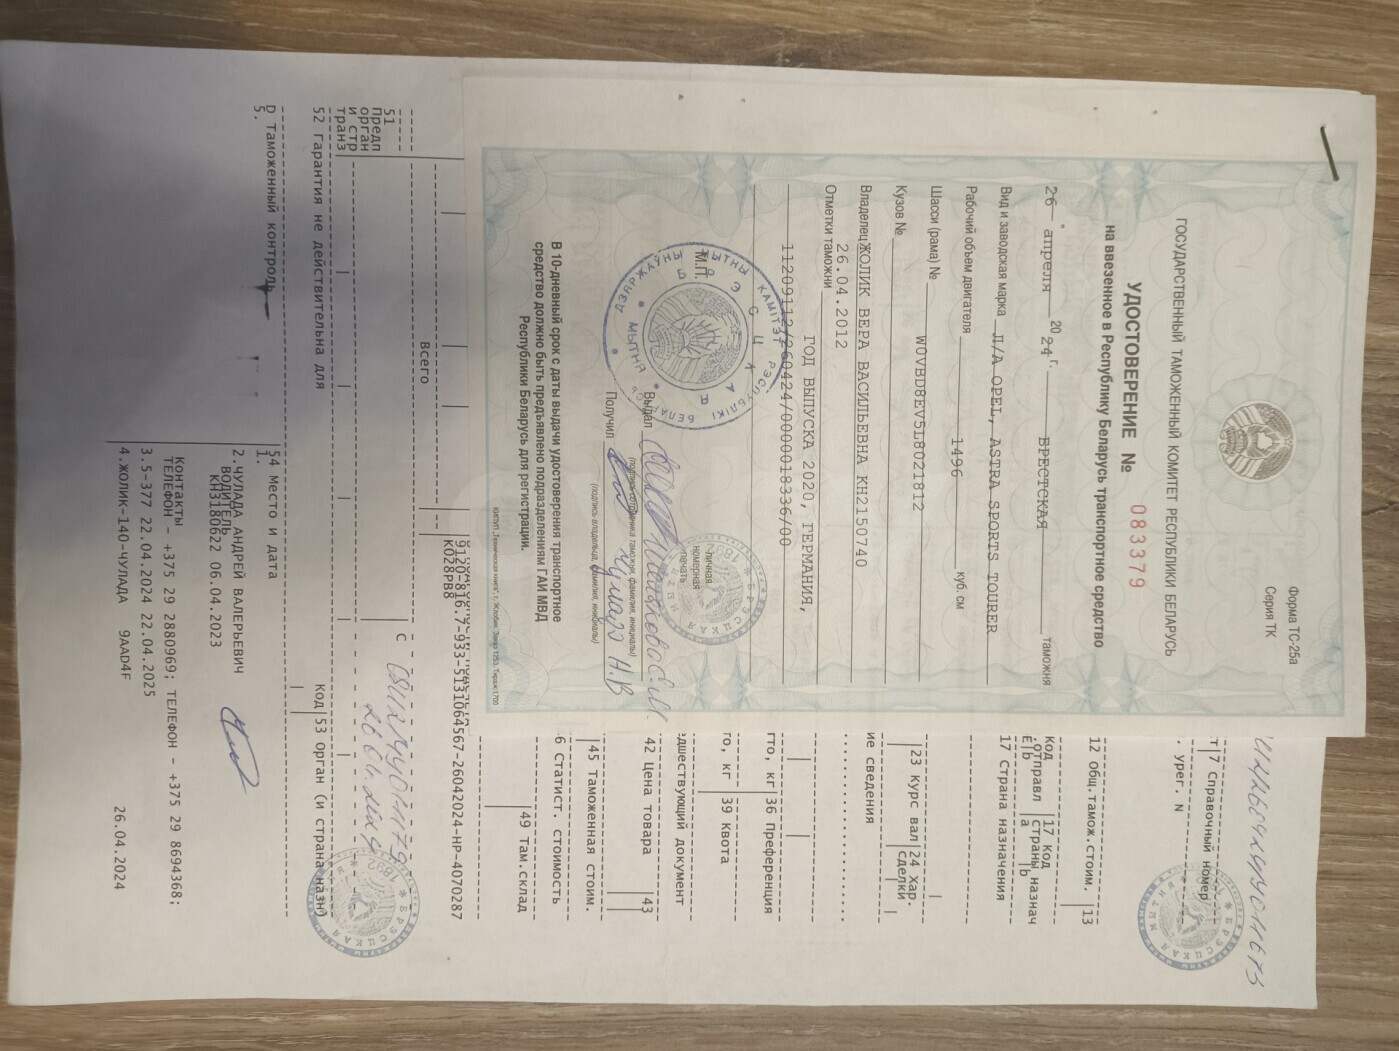 Форма ТС-25а
Серия ТК
ГОСУДАРСТВЕННЫЙ ТАМОЖЕННЫЙ КОМИТЕТ РЕСПУБЛИКИ БЕЛАРУСЬ
УДОСТОВЕРЕНИЕ № 083379
на ввезенное в Республику Беларусь транспортное средство
26 апреля 2024 г. БРЕСТСКАЯ таможня
Вид и заводская марка Л/А OPEL, ASTRA SPORTS TOURER
Рабочий объем двигателя 1496 куб. см
Шасси (рама) №
Кузов № W0VBD8EV5L8021812
Владелец ЖОЛИК ВЕРА ВАСИЛЬЕВНА КН2150740
26.04.2012
Отметки таможни
ГОД ВЫПУСКА 2020, ГЕРМАНИЯ,
11209112/260424/0000018336/00
М.П.
Выдал
(подпись сотрудника таможни, фамилия, инициалы)
личная
номерная
печать
Получил Чулада Н.В
(подпись владельца, фамилия, инициалы)
В 10-дневный срок с даты выдачи удостоверения транспортное
средство должно быть предъявлено подразделениям ГАИ МВД
Республики Беларусь для регистрации.
7 Справочный номер
. урег. N
12 общ.тамож.стоим. |13
код |17 Код
.отправл страны назнач
b| a |b
17 Страна назначения
23 курс вал|24 Хар.
Сделки
ие сведения
тто, кг|36 Преференция
го, кг |39 Квота
дшествующий документ
42 Цена товара |43
45 Таможенная стоим.
6 Статист. стоимость
49 Там.склад
9120-816.7-933-5131064567-26042024-НР-4070287
К028РВ8
Всего
51
предп
орган
и стр
транз
С
52 Гарантия не действительна для
Код|53 Орган (и страна назн)
D Таможенный контроль
5.
54 Место и дата
1.
2.ЧУЛАДА АНДРЕЙ ВАЛЕРЬЕВИЧ
ВОДИТЕЛЬ
КН3180622 06.04.2023
Контакты
ТЕЛЕФОН - +375 29 2880969; ТЕЛЕФОН - +375 29 8694368;
3.5-377 22.04.2024 22.04.2025
4.ЖОЛИК-140-ЧУЛАДА 9AAD4F 26.04.2024